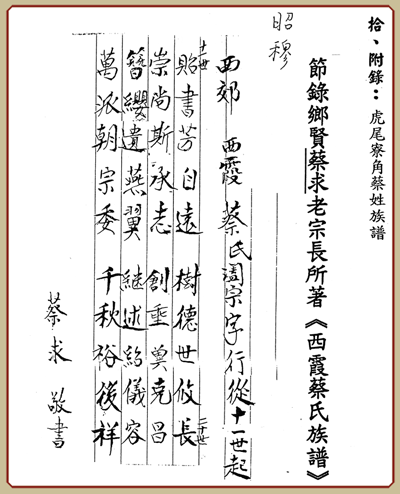 拾、附錄：虎尾寮角蔡姓族譜
節錄鄉賢蔡求老宗長所著《西霞蔡氏族譜》
昭穆
西郊 西霞 蔡氏闔宗字行從十一世起
十一世 貽書芳自遠 樹德世攸長 二十世
崇尚斯承志 創垂奠克昌
簪纓遺燕翼 繼述紹儀容
萬派朝宗委 千秋裕後祥
蔡求 敬書